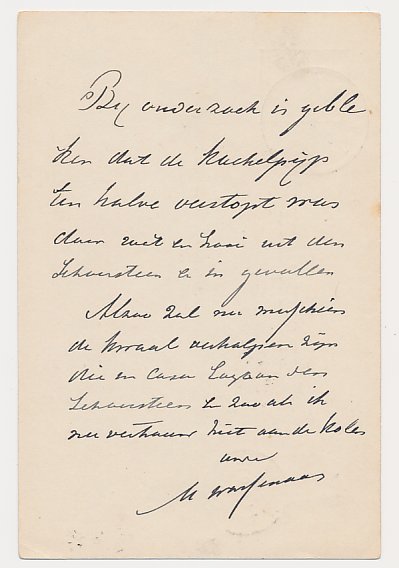 By onderzoek is geble
ken dat de kachelpyp
ten halve verstopt was
door roet en hooi uit den
Schoorsteen er in gevallen
Alzoo zal nu misschien
de kwaal verholpen zijn
die en casu den
Schoorsteen & zooals ik
nu vertrouw niet aan de kolen
uwe
M